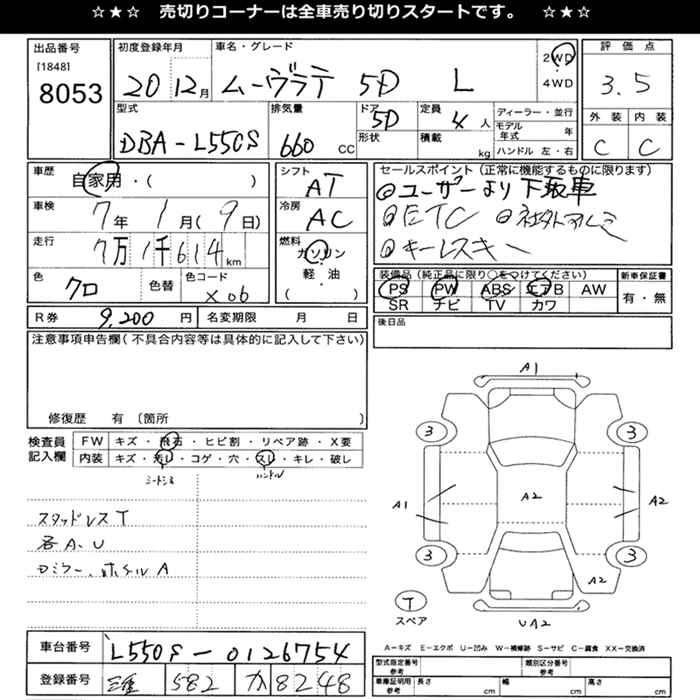 ☆★☆ 売切りコーナーは全車売り切りスタートです。 ☆★☆
出品番号 [1848] 8053
初度登録年月 20 12月
車名・グレード ムーヴラテ 5D L
2WD 4WD
評価点 3.5
外装 内装
C C
型式 DBA-L550S
排気量 660 CC
ドア 5D 形状
定員 4人 積載 kg
ディーラー・並行
モデル年式 年
ハンドル 左・右
車歴 自家用・( )
車検 7年 1月(9日)
走行 7万1千614km
色 クロ 色替 色コード X06
シフト AT
冷房 AC
燃料 ガソリン
軽・油
( )
セールスポイント(正常に機能するものに限ります)
◎ユーザーより下取車
◎ETC ◎社外アルミ
◎キーレスキー
装備品(純正品に限り○をつけてください) 新車保証書
PS PW ABS エアB AW 有・無
SR ナビ TV カワ
R券 9,200円 名変期限 月 日
後日品
注意事項申告欄(不具合内容等は具体的に記入して下さい)
修復歴 有 〔箇所 〕
検査員記入欄
FW キズ・飛石・ヒビ割・リペア跡・X要
内装 キズ・汚レ・コゲ・穴・スレ・キレ・破レ
ハンドル
スタッドレスT
各A、U
A1
3 3
A1 A2 A2
3 3
A2
T スペア
UA2
A-キズ E-エクボ U-凹み W-補修跡 S-サビ C-腐食 XX-交換済
車台番号 L550S-0126754
登録番号 三重 582 か 8248
型式指定番号 参考 類別区分番号 参考
車庫証明用 参考 長さ cm 幅 cm 高さ cm